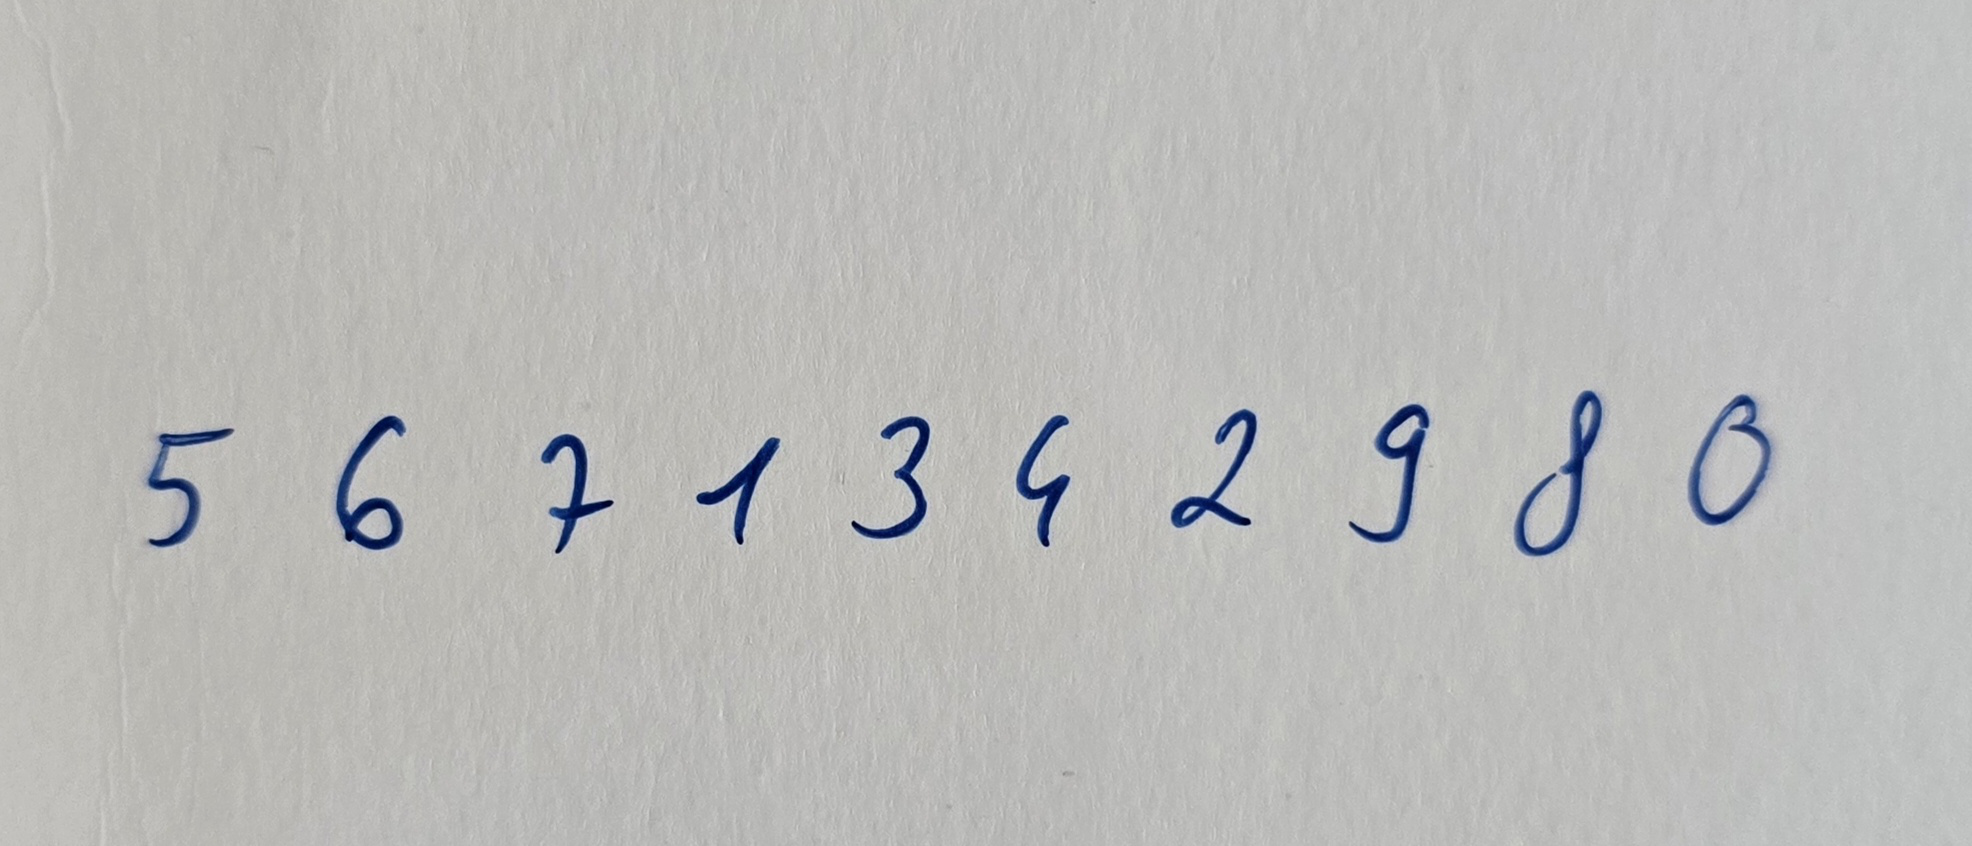 5 6 7 1 3 4 2 9 8 0